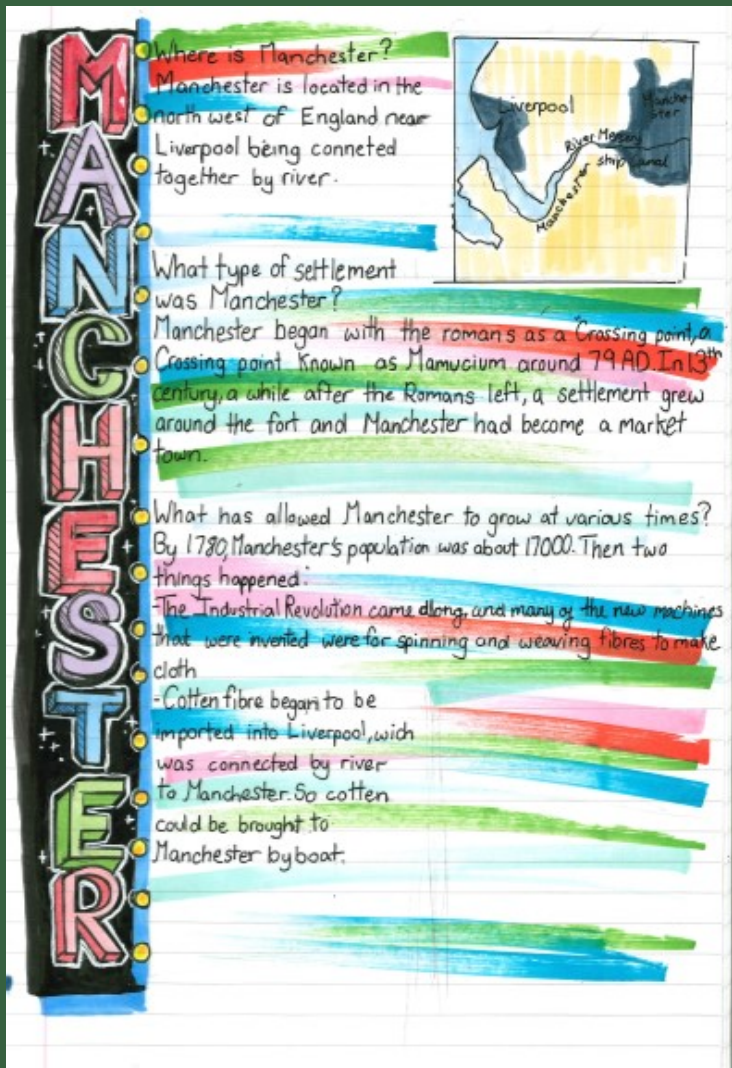 MANCHESTER
Where is Manchester?
Manchester is located in the
north west of England near
Liverpool being conneted
together by river.
Liverpool
Manche-
ster
River Mersey
Manchester ship canal
What type of settlement
was Manchester?
Manchester began with the romans as a "Crossing point, a
Crossing point known as Mamucium around 79 AD. In 13th
century, a while after the Romans left, a settlement grew
around the fort and Manchester had become a market
town.
What has allowed Manchester to grow at various times?
By 1780, Manchester's population was about 17000. Then two
things happened:
-The Industrial Revolution came along, and many of the new machines
that were invented were for spinning and weaving fibres to make
cloth
-Cotten fibre began to be
imported into Liverpool, wich
was connected by river
to Manchester. So cotten
could be brought to
Manchester by boat.